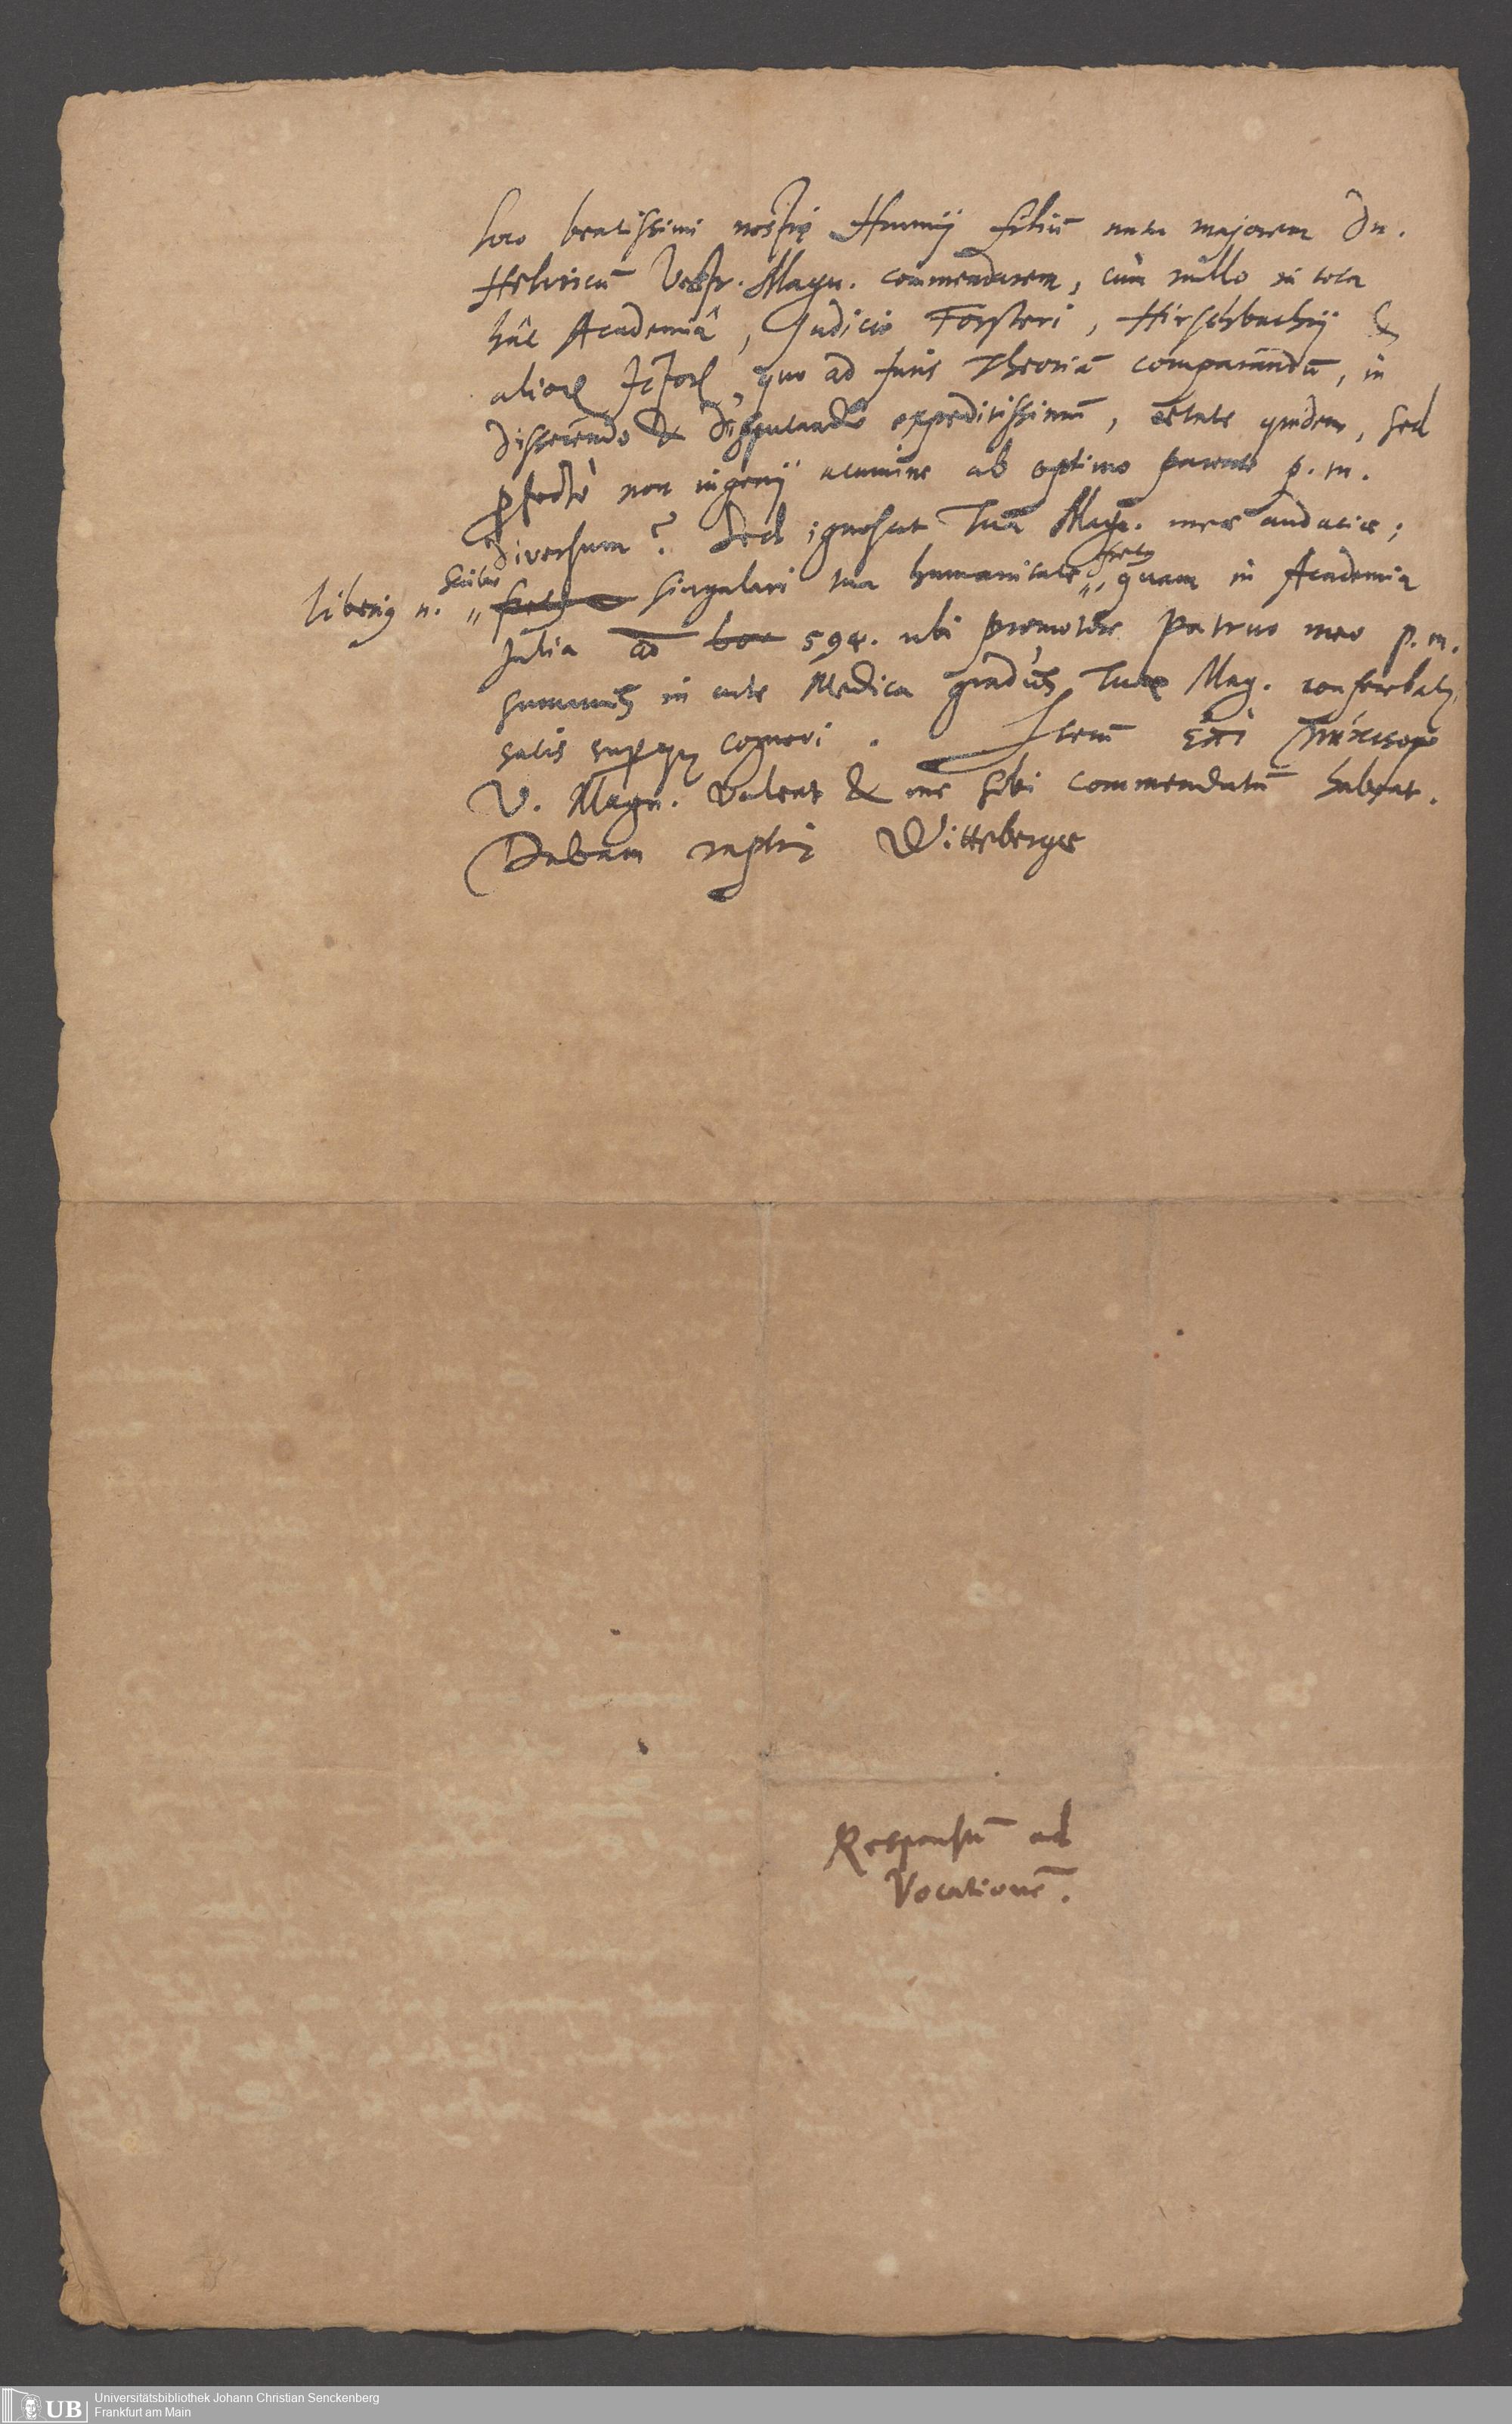 loco beatissimi nostri Hunnij filiū natu majorem Dn.
Helvicū Vestr. Magn. commendarem, cùm nullo in tota
hâc Academiâ, Judicio Forsteri, Hirschbachij &
alior. JCtor., quo ad Juris Theoriā comparandū, in
disserendo & disputando expeditissimū, ætate quidem, sed
profectò non ingenij acumine ab optimo parente p. m.
diversum? Sed ignoscat Tua Magn. meæ audaciæ;
liberius n. scribo singulari tua humanitate fretus, quam in Academia
Julia aō 594. ubi promotore Patruo meo p. m.
summus in arte Medica gradus Tuæ Mag. conferebatur,
satis superque cognovi. Iterū
V. Magn. valeat & me sibi commendatū habeat.
Dabam raptim Wittebergæ
Responsū ad
Vocationē.
Universitätsbibliothek Johann Christian Senckenberg
Frankfurt am Main
UB